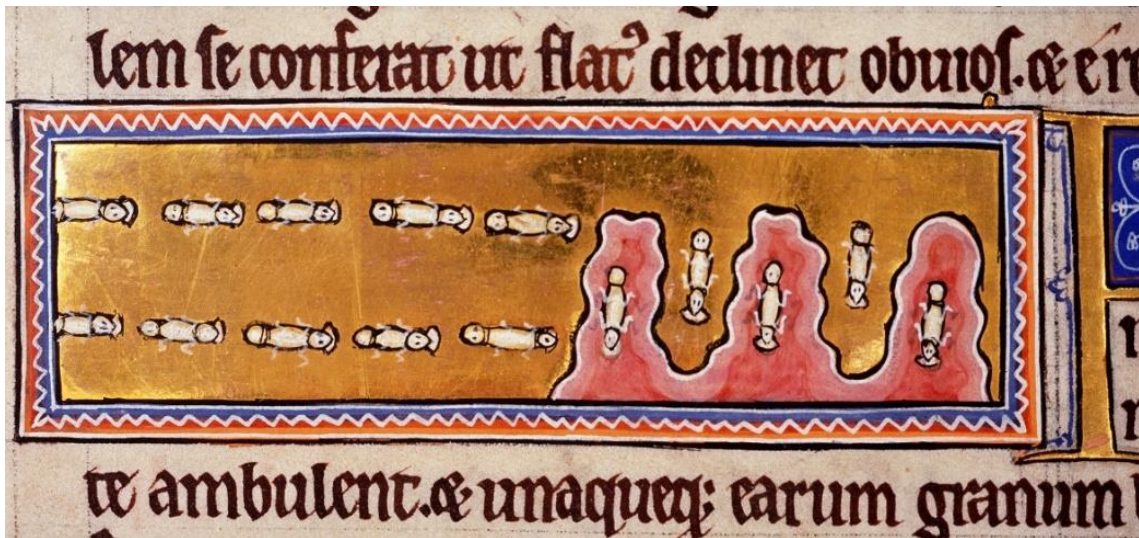 lem se conferat ut flatꝰ declinet obuios. & e
te ambulent. & unaqueq; earum granum